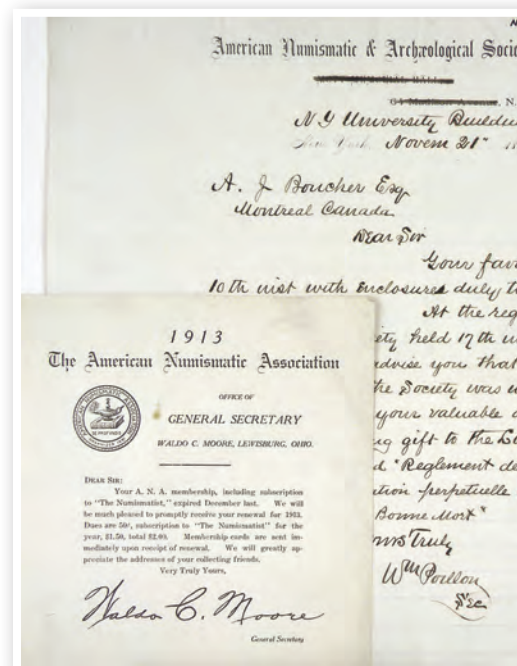 American Numismatic & Archæological Socie
N Y University Buildin
New York, Novem 21"
A. J Boucher Esq
Montreal Canada
Dear Sir
Your fav
10th inst with enclosures duly
At the reg
ety held 17th
dvise you that
he Society was
your valuable
ng gift to the
d "Reglement de
ation perpetuelle
Bonne Mort"
ours Truly
Wm Poillon
Sec
1913
The American Numismatic Association
OFFICE OF
GENERAL SECRETARY
WALDO C. MOORE, LEWISBURG, OHIO.
DEAR SIR:
Your A. N. A. membership, including subscription
to "The Numismatist," expired December last. We will
be much pleased to promptly receive your renewal for 1913.
Dues are 50¢, subscription to "The Numismatist" for the
year, $1.50, total $2.00. Membership cards are sent im-
mediately upon receipt of renewal. We will greatly ap-
preciate the addresses of your collecting friends.
Very Truly Yours,
Waldo C. Moore
General Secretary